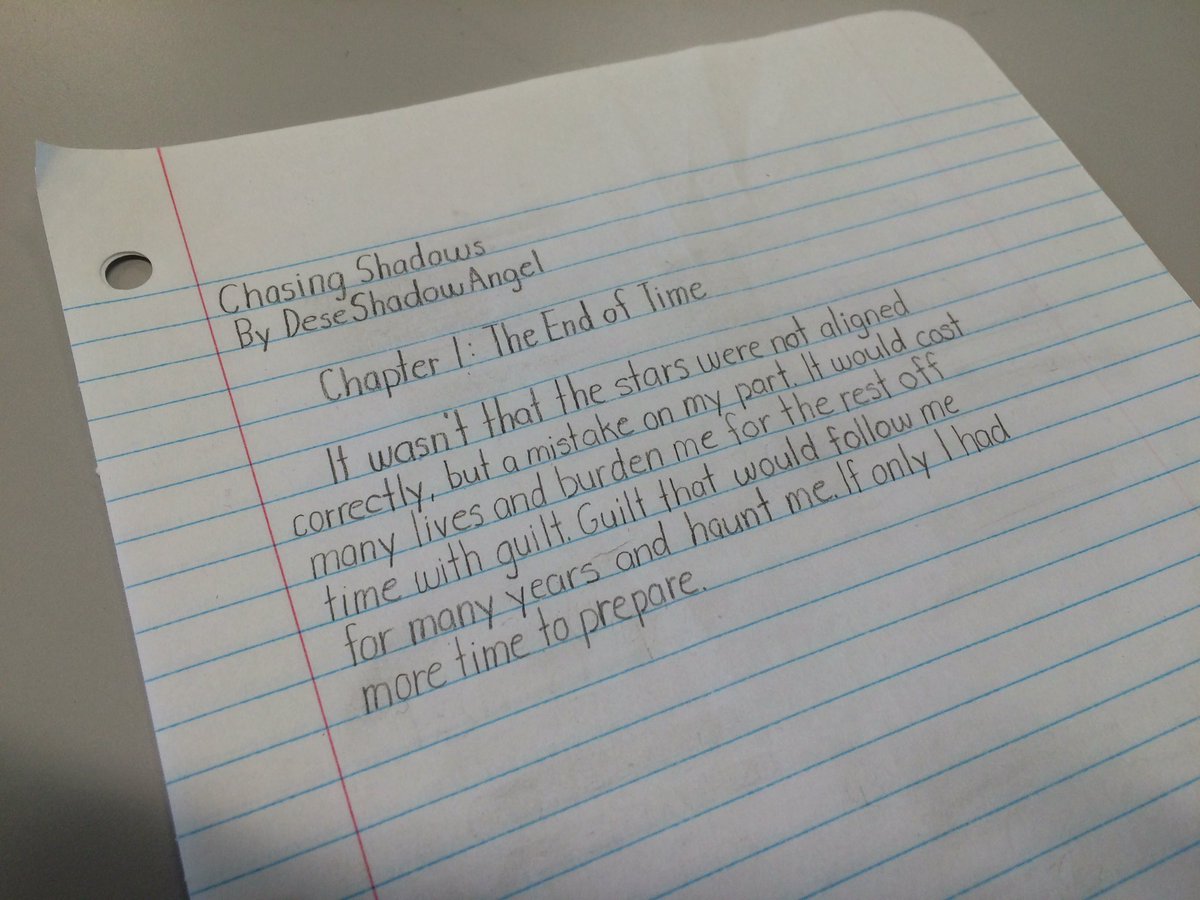 Chasing Shadows
By DeseShadowAngel
Chapter 1: The End of Time
It wasn't that the stars were not aligned
correctly, but a mistake on my part. It would cost
many lives and burden me for the rest off
time with guilt. Guilt that would follow me
for many years and haunt me. If only I had
more time to prepare.